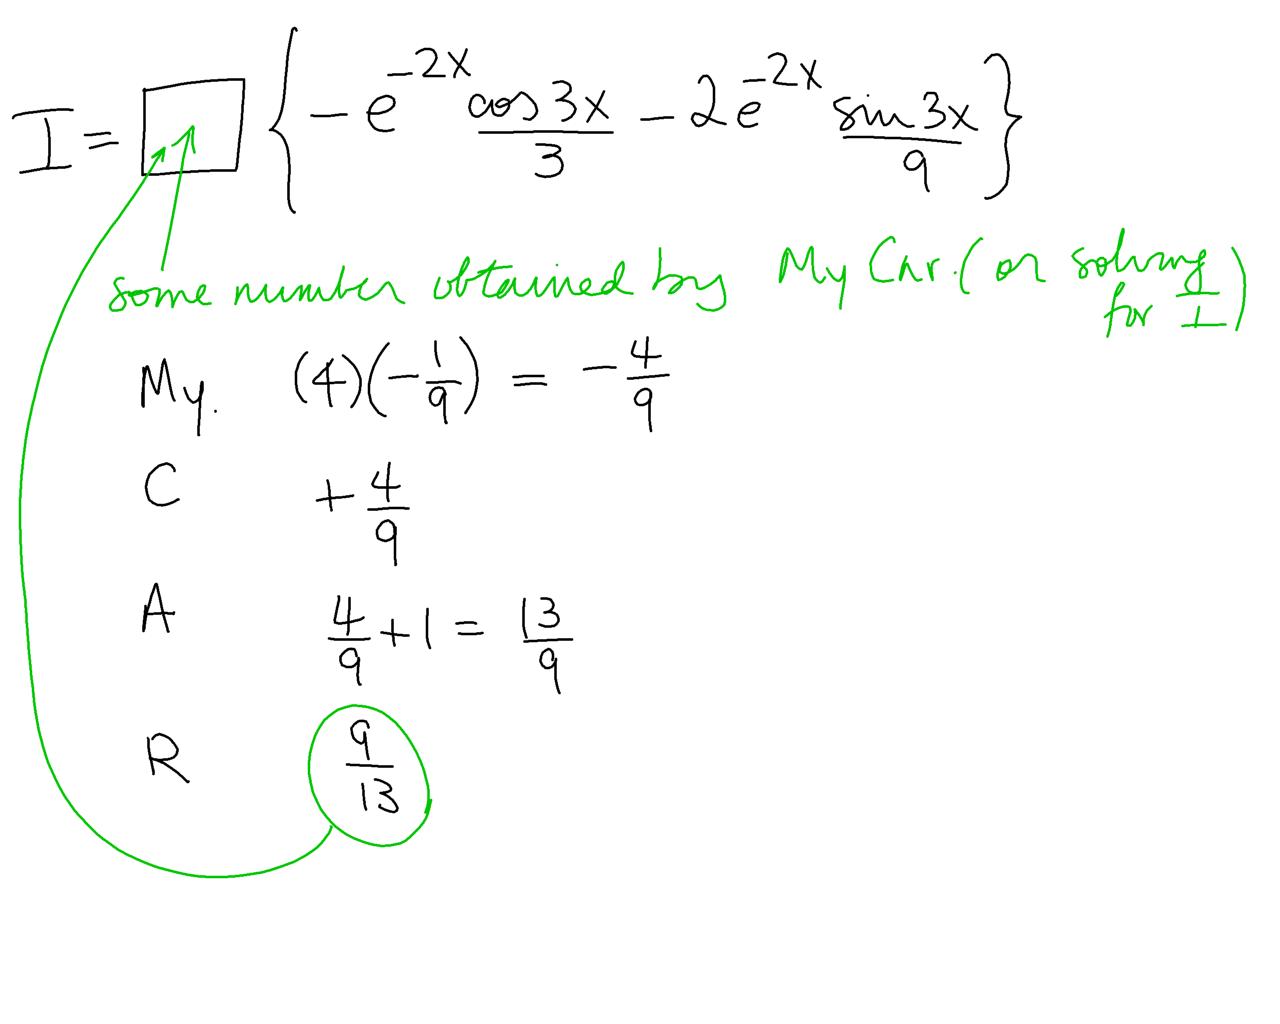 I = □ { - e^{-2x} cos 3x / 3 - 2e^{-2x} sin 3x / 9 }
some number obtained by My Car. (or solving for I)
My. (4)(-1/9) = -4/9
C +4/9
A 4/9 + 1 = 13/9
R 9/13